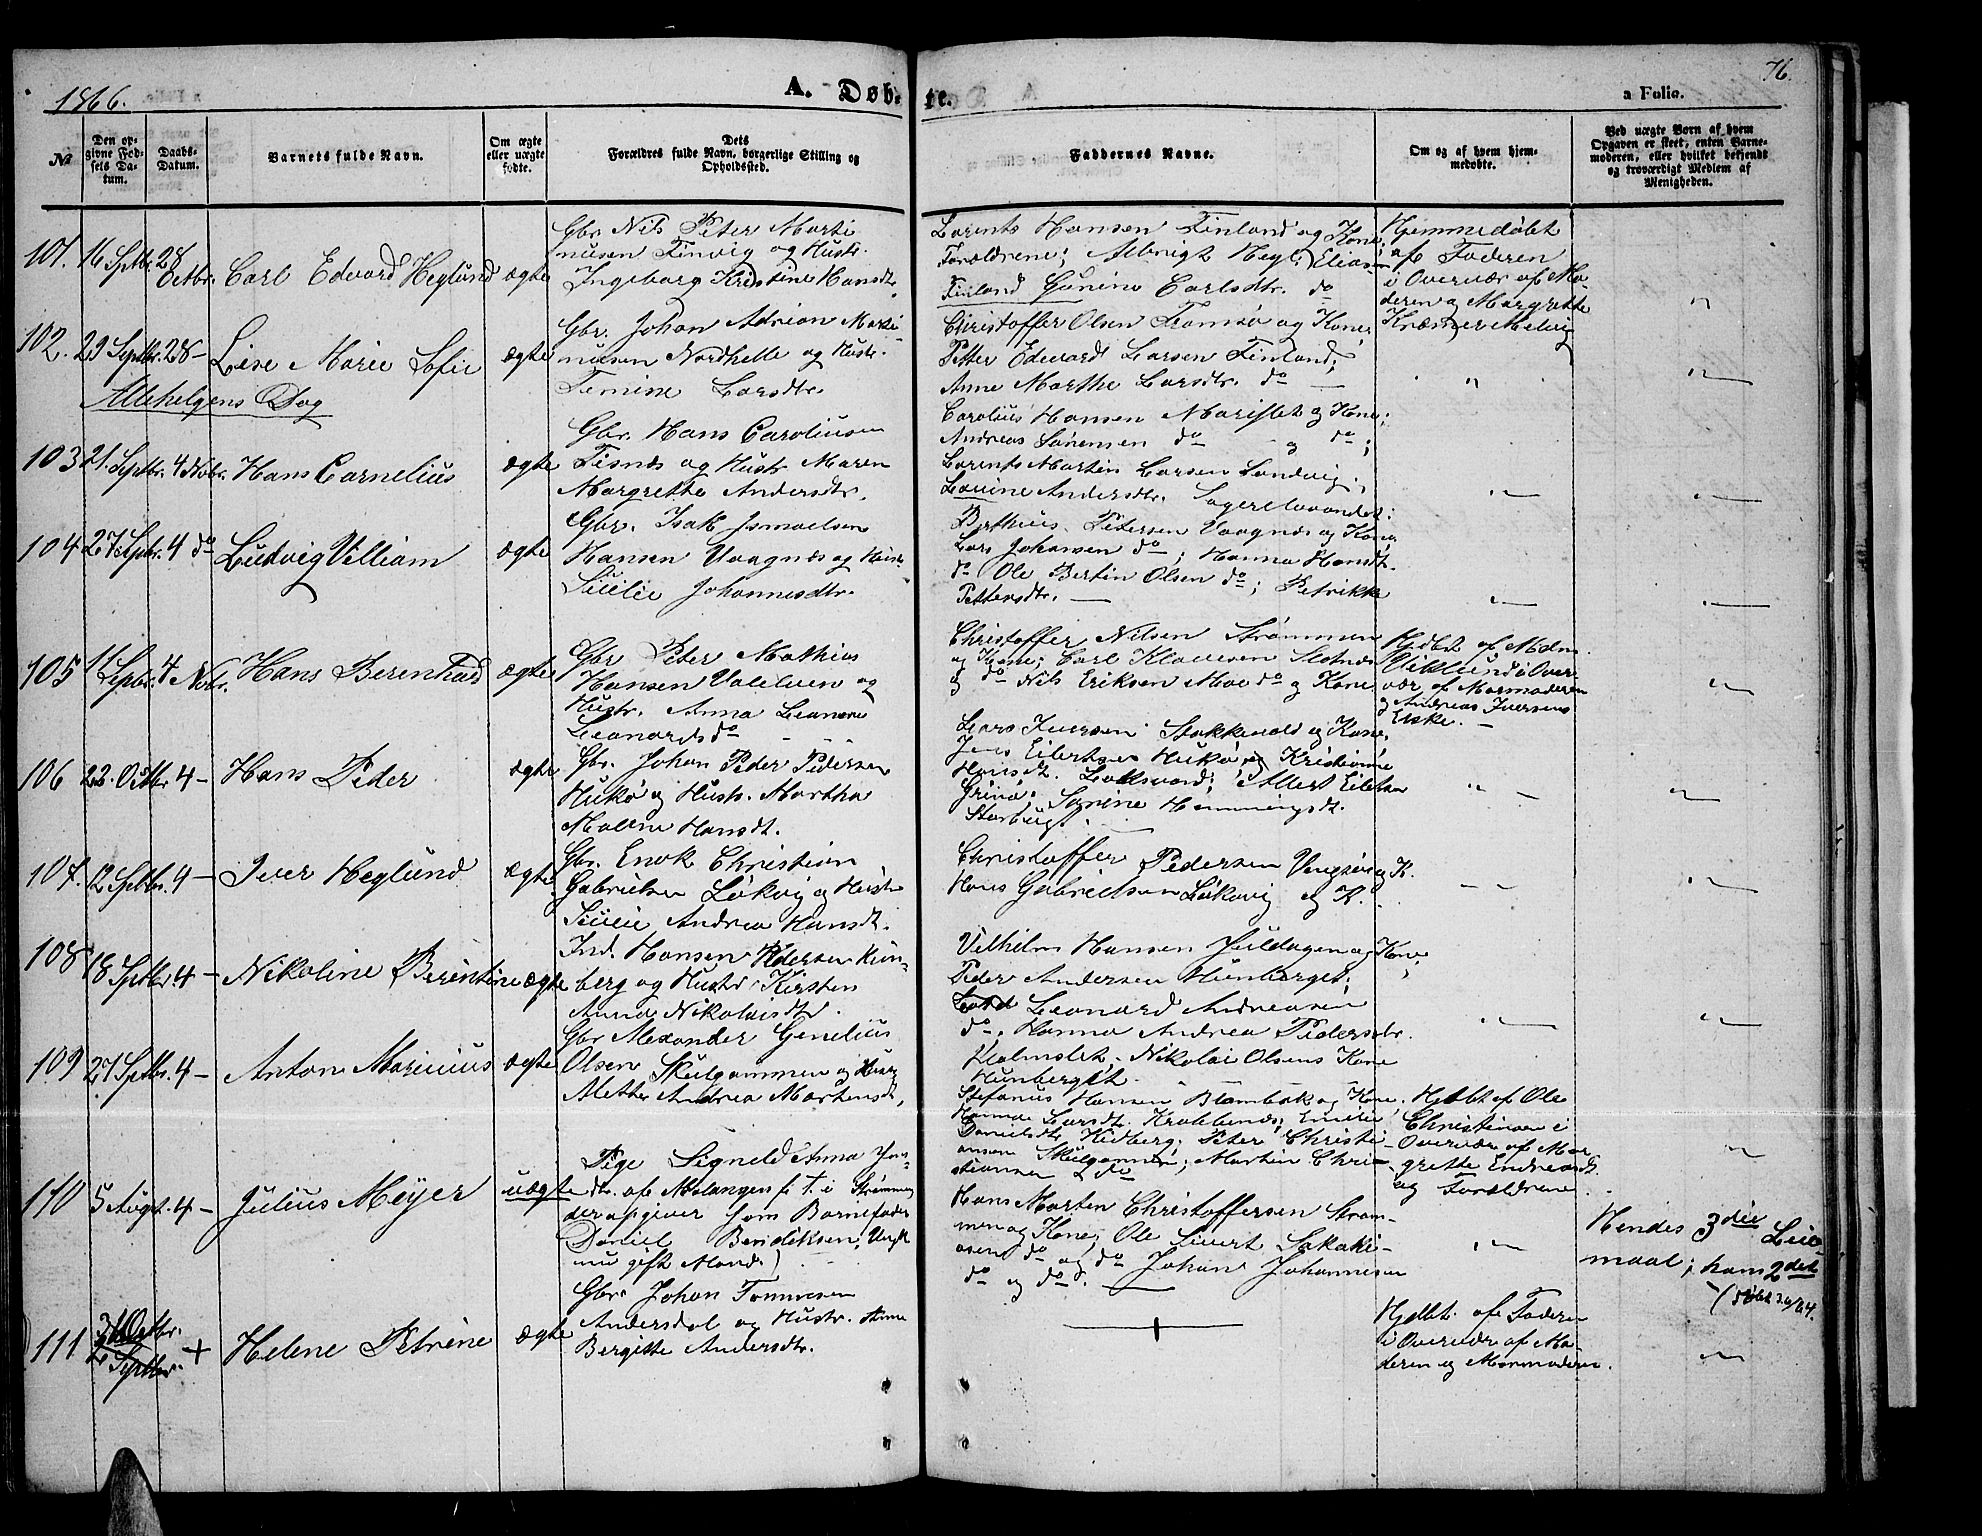 1866.
A. Døb-
te.
76.
a Folio.
No
Den op-
givne Fød-
sels Da-
tum.
Daabs-
Datum.
Barnets fulde Navn.
Om ægte
eller uægte
fødte.
Dets
Forældres fulde Navn, borgerlige Stilling og
Opholdssted.
Faddernes Navne.
Om og af hvem hjem-
medøbte.
Ved uægte Born af hvem
Opgaven er skeet, enten Barne-
moderen, eller hvilket bekjendt
og troværdigt Medlem af
Menigheden.
101. 16 Septbr. 28 Octbr. Carl Edvard Heglund ægte
Gbr. Nils Peter Marti
nusen Finvig og Hustr.
Ingeborg Kristine Hansdtr.
Lorents Hansen Finland og Kone;
Forældrene; Albrigt Hegl. Elias
Finland Gunine Carlsdtr. do
Hjemmedøbt
af Faderen
i Overvær af Mo-
deren og Margrette
Kræmer Melvig
102. 29 Septbr. 28 - Lise Marie Sofie ægte
Gbr. Johan Adrian Marti
nusen Nordhelle og Hustr.
Femine Larsdtr.
Christoffer Olsen Tromsø og Kone;
Petter Edvard Larsen Finland;
Anne Marthe Larsdtr. do
Allehelgens Dag
103 21. Septbr. 4 Nobr. Hans Cornelius ægte
Gbr. Hans Caroliusen
Tisnæs og Hustr Maren
Margrette Andersdtr.
Carolius Hansen Marislet og Kone;
Andreas Sørensen do og do;
Lorents Martin Larsen Sandvig;
Lovine Andersdtr.
104 27 Septbr. 4 do Ludvig Villiam ægte
Gbr. Isak Ismaelsen
Hansen Vaagnæs og Hustr
Sicilie Johannesdtr.
Berthius Pedersen Vaagnæs og Kone
Lars Johansen do; Hanna Hansdt.
do Ole Bertin Olsen do; Petrikke
Pettersdtr.
105 11 Septbr. 4 Nobr. Hans Berenhard ægte
Gbr Peter Mathias
Hansen og
Hustr. Anna Leanore
Leonardsdo
Christoffer Nilsen Strømmen
og Kone; Carl Klausen Slotnæs
og do Nils Eriksen Moe do og Kone
Hjdbt af Mdm.
Viklund i Over-
vær af Mormoderen
og Andreas Iversens
Enke.
106 22. Octbr 4 - Hans Peder ægte
Gbr. Johan Peder Pedersen
Hukø og Hustr. Martha
Malene Hansdt.
Lars Iversen Stakkevold og Kone,
Jens Eilertsen Hukø og Kristianne
Hansdt. Laksvand; Albert Eilertsen
Grinø. Sørine Hemmingsdt.
Storbugt.
107. 12 Septbr. 4 - Iver Heglund ægte
Gbr. Enok Christian
Gabrielsen Løkvig og Hustr
Sicilie Andrea Hansdt.
Christoffer Pedersen Vengsø og K.
Hans Gabrielsen Løkvig og K.
108 18 Septbr. 4 - Nikoline Berentine ægte
Ind. Hansen Pedersen Hun-
berg og Hustr Kirsten
Anna Nikolaisdtr.
Vilhelm Hansen og Kone;
Peder Andersen Hunberget;
Leonard Andreasen
do; Hanna Andrea Pedersdtr.
Holmslet. Nikolai Olsens Kone
Hunberget.
109 27 Septbr. 4 - Anton Marinius ægte
Gbr Alexander Genelius
Olsen Skulgammen og Hustr
Mette Andrea Martensdt,
Stefanus Hansen og Kone.
Hanna Larsdtr. Emilie
Danielsdtr. Peter Christi-
ansen Skulgammen; Martin Chri-
stiansen do
Hjdbt af Ole
Christiansen i
Overvær af Mar
grette Endreasdt.
og Forældrene.
110 5 Augt. 4 - Julius Meyer uægte
Pige Signeld Anna Jons-
dtr. af Malangen f. t. i Strømmen
der opgiver som Barnefader
Daniel Bendiksen, Ungk
nu gift Mand.)
Hans Morten Christoffersen Strøm-
men og Kone; Ole Sivert Isakski-
asen do og do Johan Johannesen
do og do.
Hendes 3die Leie-
maal; hans 2det
111 31 Octbr. Septbr. + Helene Petrine ægte
Gbr. Johan Tommesen
Andersdal og Hustr. Anne
Bergitte Andersdtr.
Hjdbt. af Faderen
i Overvær af Mo-
deren og Mormoderen.